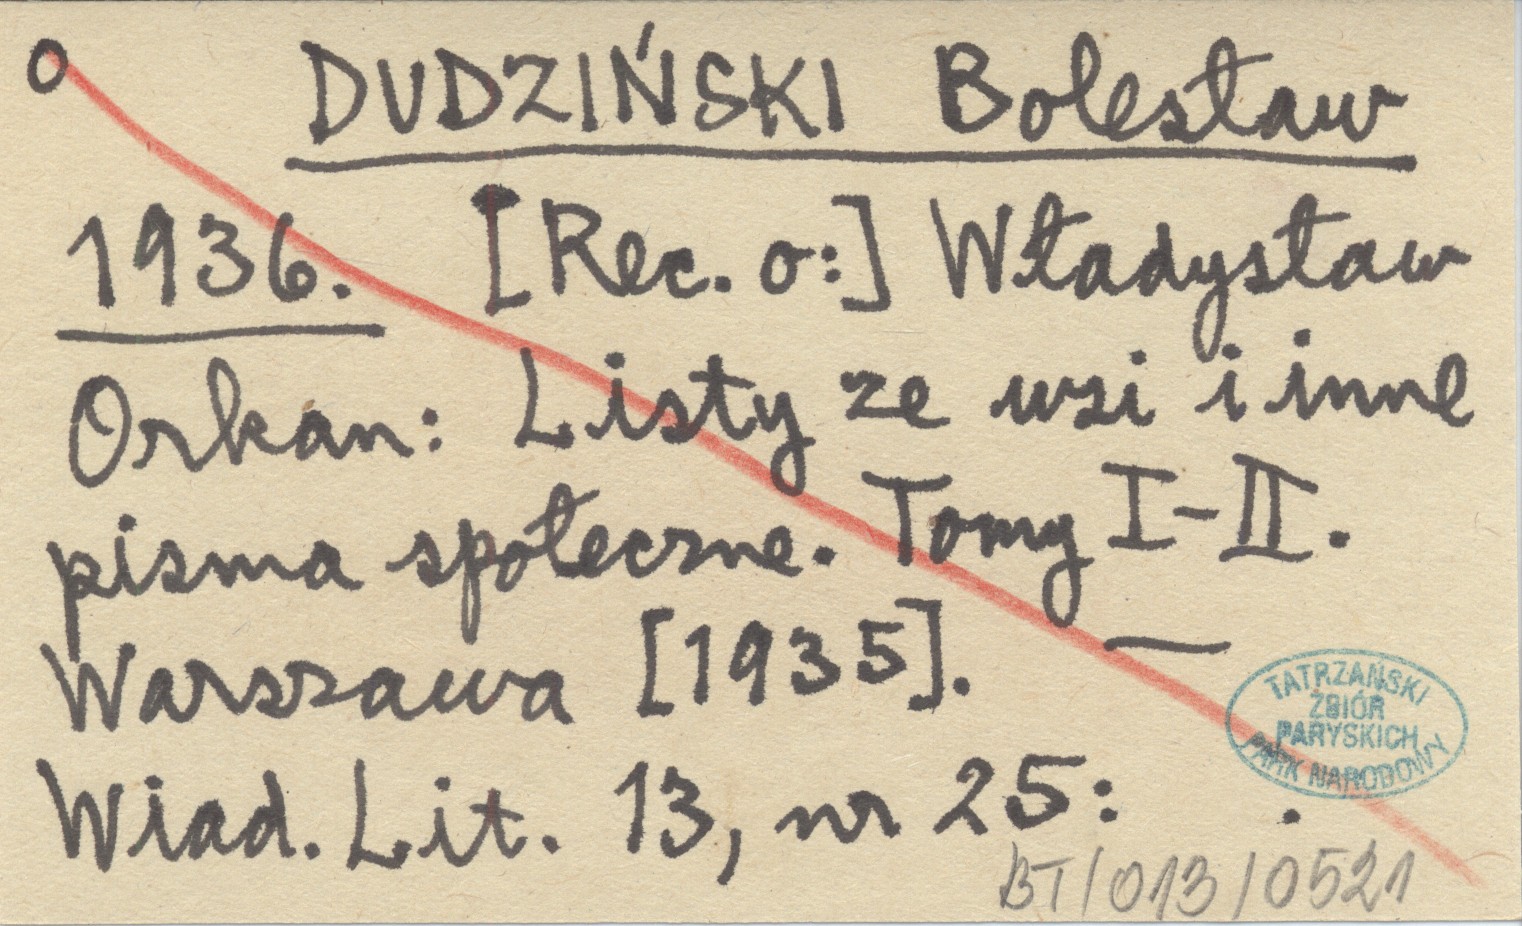 o DUDZIŃSKI Bolesław
1936. [Rec. o:] Władysław
Orkan: Listy ze wsi i inne
pisma społeczne. Tomy I-II.
Warszawa [1935]. —
Wiad. Lit. 13, nr 25: .
TATRZAŃSKI
ZBIÓR
PARYSKICH
PARK NARODOWY
BT/013/0521